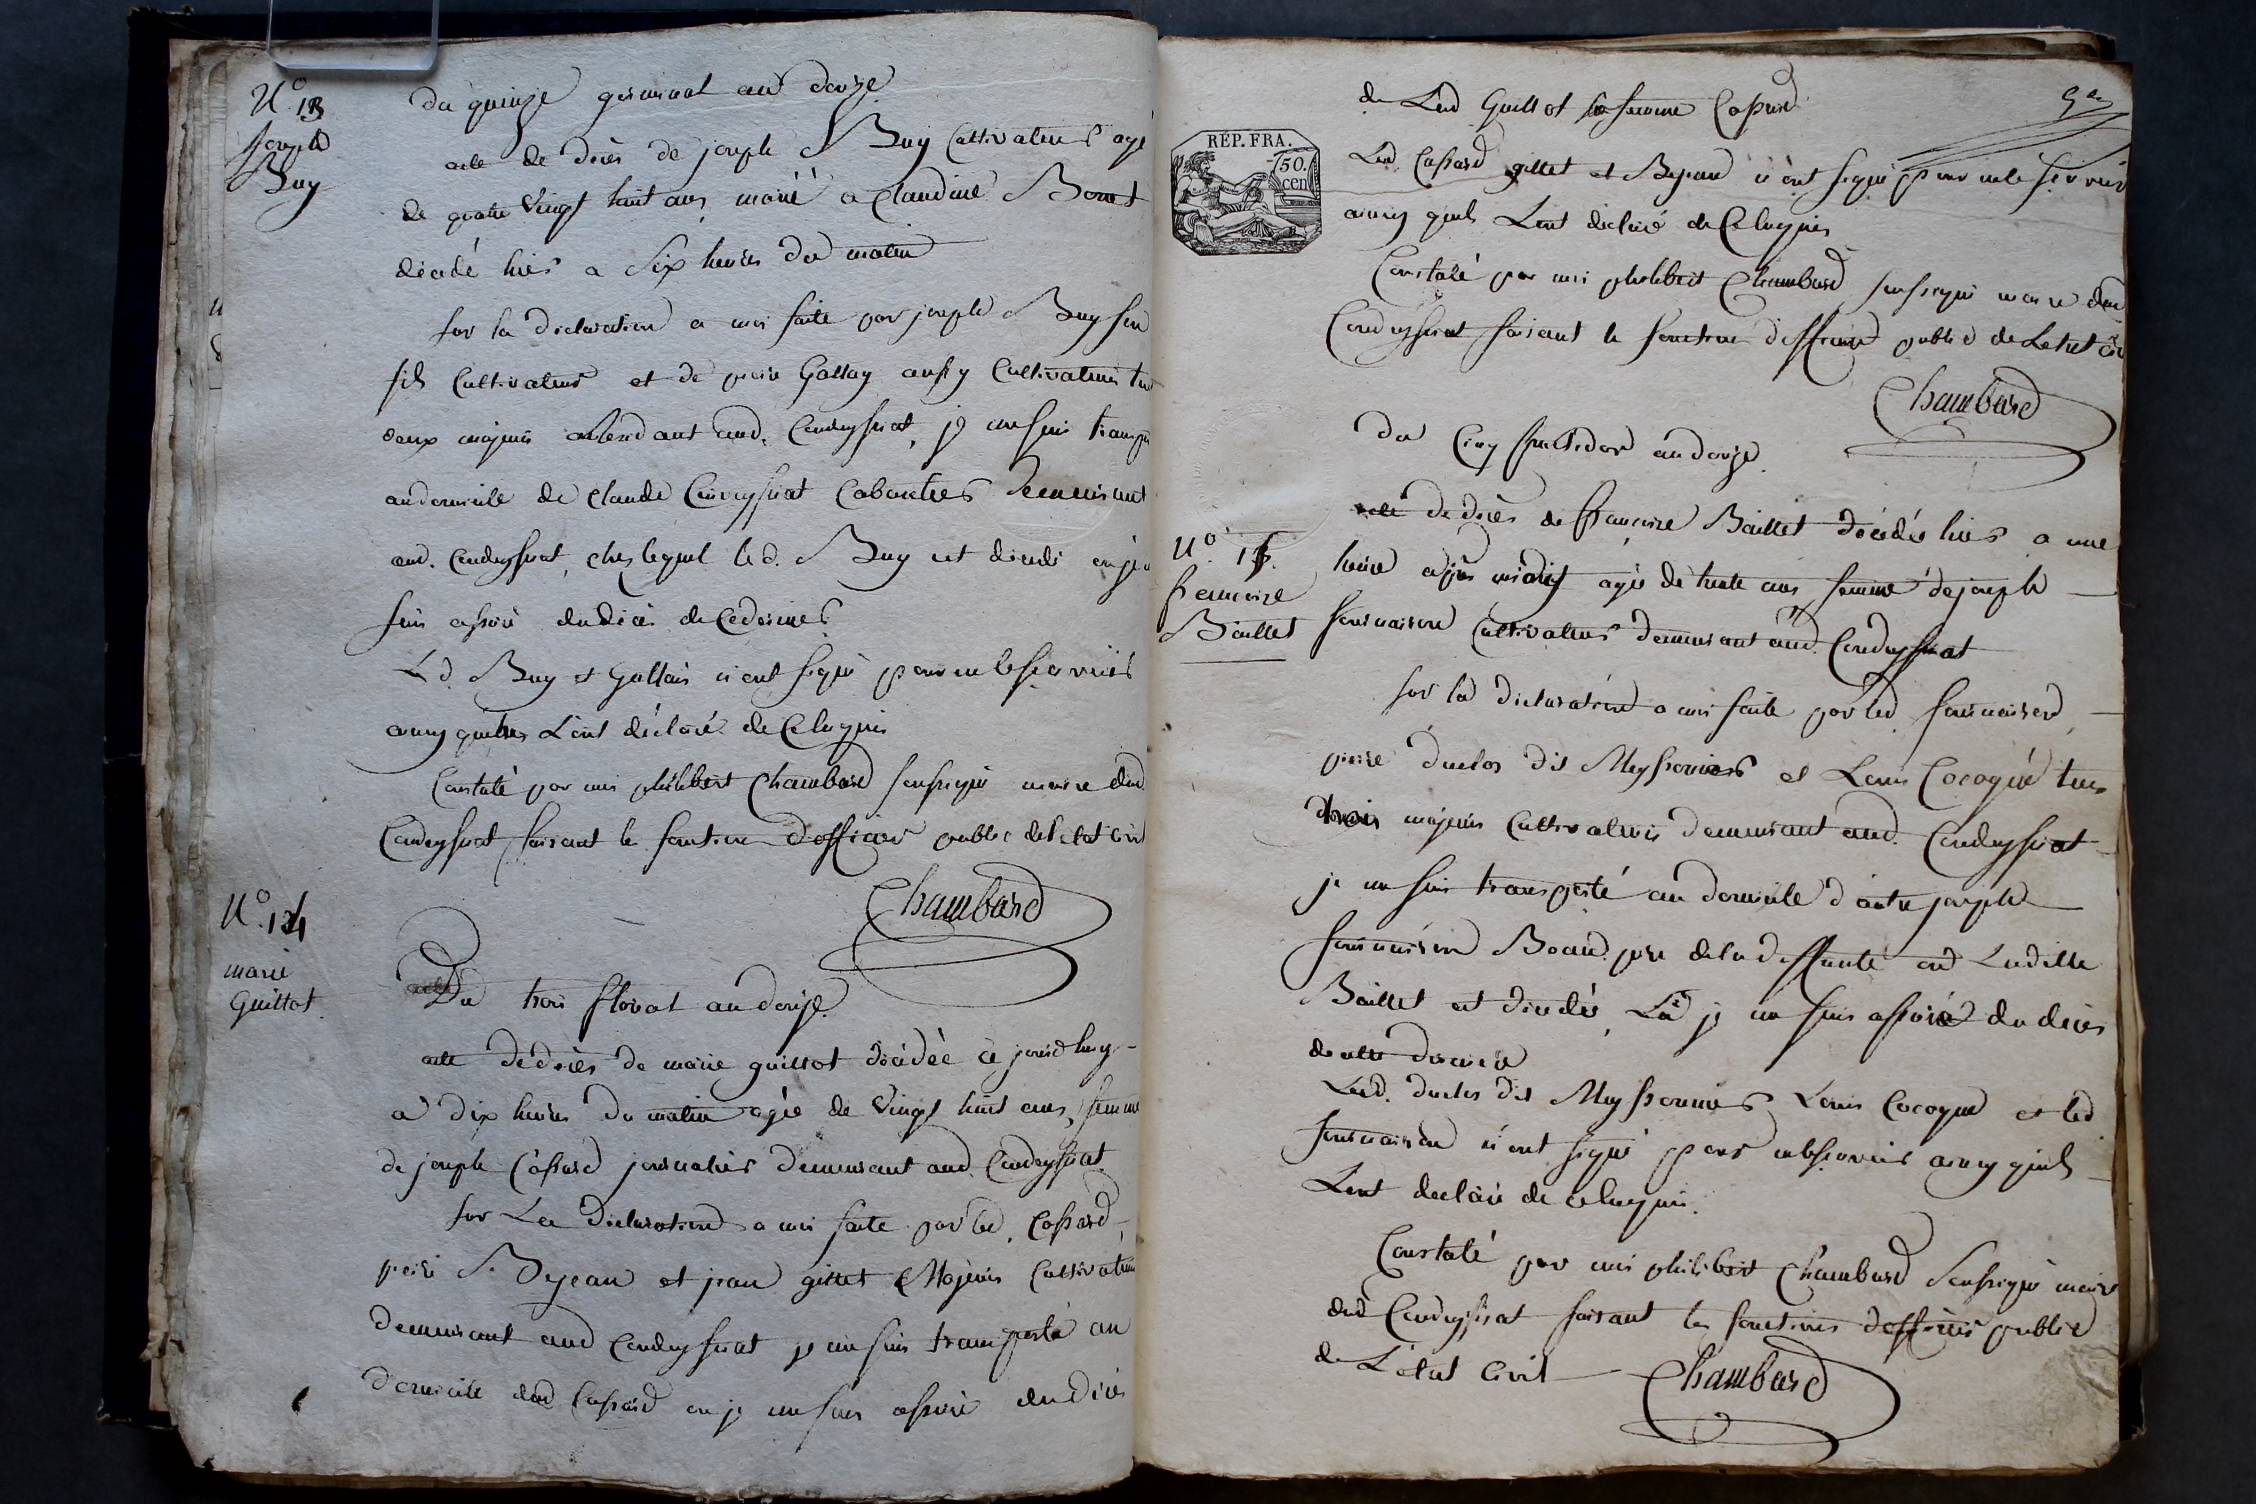 N.° 13
Joseph
Buy
du quinze germinal an douze
acte de décès de joseph Buy cultivateur agé
de quatre vingt huit ans, marié a claudine Bonet
décédé hier a six heures du matin
sur la déclaration a moi faite par joseph Buy son
fils cultivateur et de piere Gallay aussy cultivateurs tus
deux majeurs demurant aud. Condeyssiat, je me suis transpor
au domicile de claude Condeyssiat cabaretier demeurant
aud. Condeyssiat, chez lequel led. Buy est décédé ou je
suis assuré dud décès de ce dernier
Led. Buy et Gallais n'ont signé pour ne le sçavoir
ainsy qu'ils L'ont déclaré de ce enquis
Constaté par moi philibert Chambard soussigné maire dud.
Condeyssiat faisant le fonction d'officier public de l'état civil
Chambard
N.° 14
marie
Guillot
Du trois floreal an douze
acte de décès de marie guillot décédée ce jourd'huy
a dix heures du matin agée de vingt huit ans, femme
de joseph Cassard journalier demeurant aud. Condeyssiat
sur La déclaration a moi faite par led. Cassard
piere Bejean et jean gillet Majeurs cultivateurs
demeurant aud Condeyssiat je me suis transporté au
domicile dud Cassard ou je me suis assuré dud décès
de Lad Guillot sa femme Cassard
Led Cassard gillet et Bejean n'ont signé pour ne le sçavoir
ainsy qu'ils L'ont déclaré de ce enquis
Constaté par moi philibert Chambard soussigné maire dud
Condeyssiat faisant le fonction d'officier public de L'etat civ
Chambard
RÉP. FRA.
50.
cen
Du Cinq fructidor an douze
N.° 15.
francoise
Baillet
acte de décès de francoise Baillet décédée hier a une
heure après midy agée de trente ans, femme de joseph
cultivateur demeurant aud. Condeyssiat
sur la déclaration a moi faite par led
piere duclos dit Meyssonnier et Louis Cocogne tus
trois majeurs cultivateurs demeurant aud. Condeyssiat
je me suis transporté au domicile d'autre joseph
pere de lad deffunte ou Ladille
Baillet est décédée, La je me suis assuré du décès
de cette derniere
Led. duclos dit Meyssonnier, Louis Cocogne et led.
n'ont signé pour ne le sçavoir ainsy qu'ils
L'ont declaré de ce enquis.
Constaté par moi philibert Chambard soussigné maire
dud Condeyssiat faisant les fonctions d'officier public
de L'état civil
Chambard